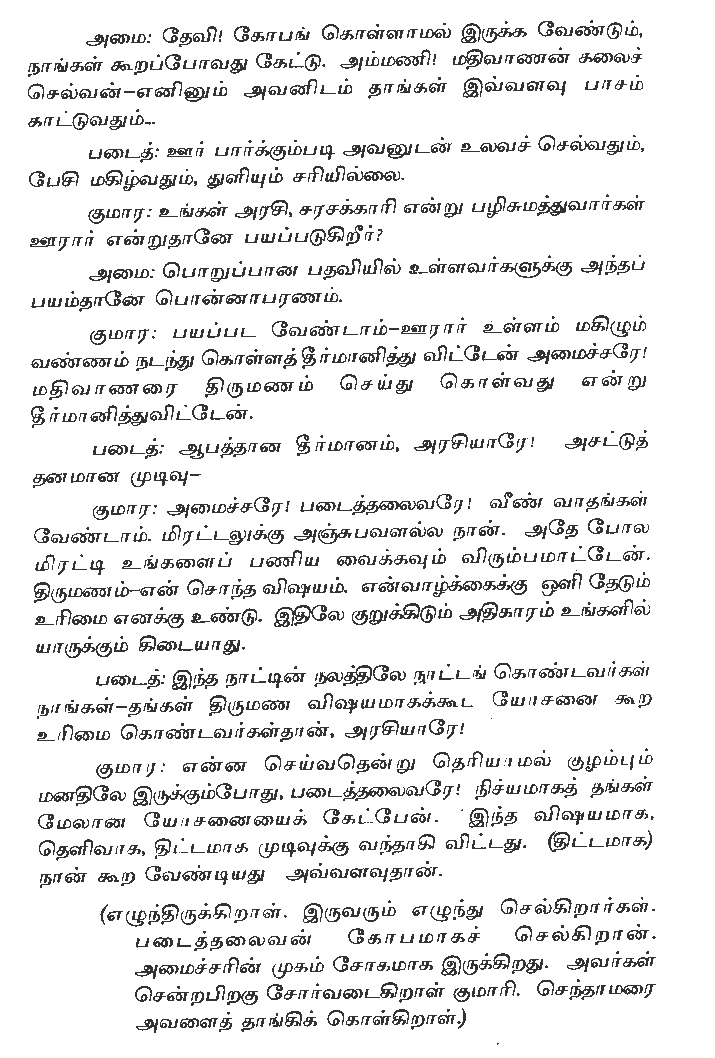 அமை: தேவி! கோபங் கொள்ளாமல் இருக்க வேண்டும்,
நாங்கள் கூறப்போவது கேட்டு. அம்மணி! மதிவாணன் கலைச்
செல்வன்–எனினும் அவனிடம் தாங்கள் இவ்வளவு பாசம்
காட்டுவதும்...
படைத்: ஊர் பார்க்கும்படி அவனுடன் உலவச் செல்வதும்,
பேசி மகிழ்வதும், துளியும் சரியில்லை.
குமார: உங்கள் அரசி, சரசக்காரி என்று பழிசுமத்துவார்கள்
ஊரார் என்றுதானே பயப்படுகிறீர்?
அமை: பொறுப்பான பதவியில் உள்ளவர்களுக்கு அந்தப்
பயம்தானே பொன்னாபரணம்.
குமார: பயப்பட வேண்டாம்–ஊரார் உள்ளம் மகிழும்
வண்ணம் நடந்து கொள்ளத்தீர்மானித்து விட்டேன் அமைச்சரே!
மதிவாணரை திருமணம் செய்து கொள்வது என்று
தீர்மானித்துவிட்டேன்.
படைத்: ஆபத்தான தீர்மானம், அரசியாரே! அசட்டுத்
தனமான முடிவு–
குமார: அமைச்சரே! படைத்தலைவரே! வீண் வாதங்கள்
வேண்டாம். மிரட்டலுக்கு அஞ்சுபவளல்ல நான். அதே போல
மிரட்டி உங்களைப் பணிய வைக்கவும் விரும்பமாட்டேன்.
திருமணம்–என் சொந்த விஷயம். என்வாழ்க்கைக்கு ஒளி தேடும்
உரிமை எனக்கு உண்டு. இதிலே குறுக்கிடும் அதிகாரம் உங்களில்
யாருக்கும் கிடையாது.
படைத்: இந்த நாட்டின் நலத்திலே நாட்டங் கொண்டவர்கள்
நாங்கள்–தங்கள் திருமண விஷயமாகக்கூட யோசனை கூற
உரிமை கொண்டவர்கள்தான், அரசியாரே!
குமார: என்ன செய்வதென்று தெரியாமல் குழம்பும்
மனதிலே இருக்கும்போது, படைத்தலைவரே! நிச்யமாகத் தங்கள்
மேலான யோசனையைக் கேட்பேன். இந்த விஷயமாக,
தெளிவாக, திட்டமாக முடிவுக்கு வந்தாகி விட்டது. (திட்டமாக)
நான் கூற வேண்டியது அவ்வளவுதான்.
(எழுந்திருக்கிறாள். இருவரும் எழுந்து செல்கிறார்கள்.
படைத்தலைவன் கோபமாகச் செல்கிறான்.
அமைச்சரின் முகம் சோகமாக இருக்கிறது. அவர்கள்
சென்றபிறகு சோர்வடைகிறாள் குமாரி. செந்தாமரை
அவளைத் தாங்கிக் கொள்கிறாள்.)